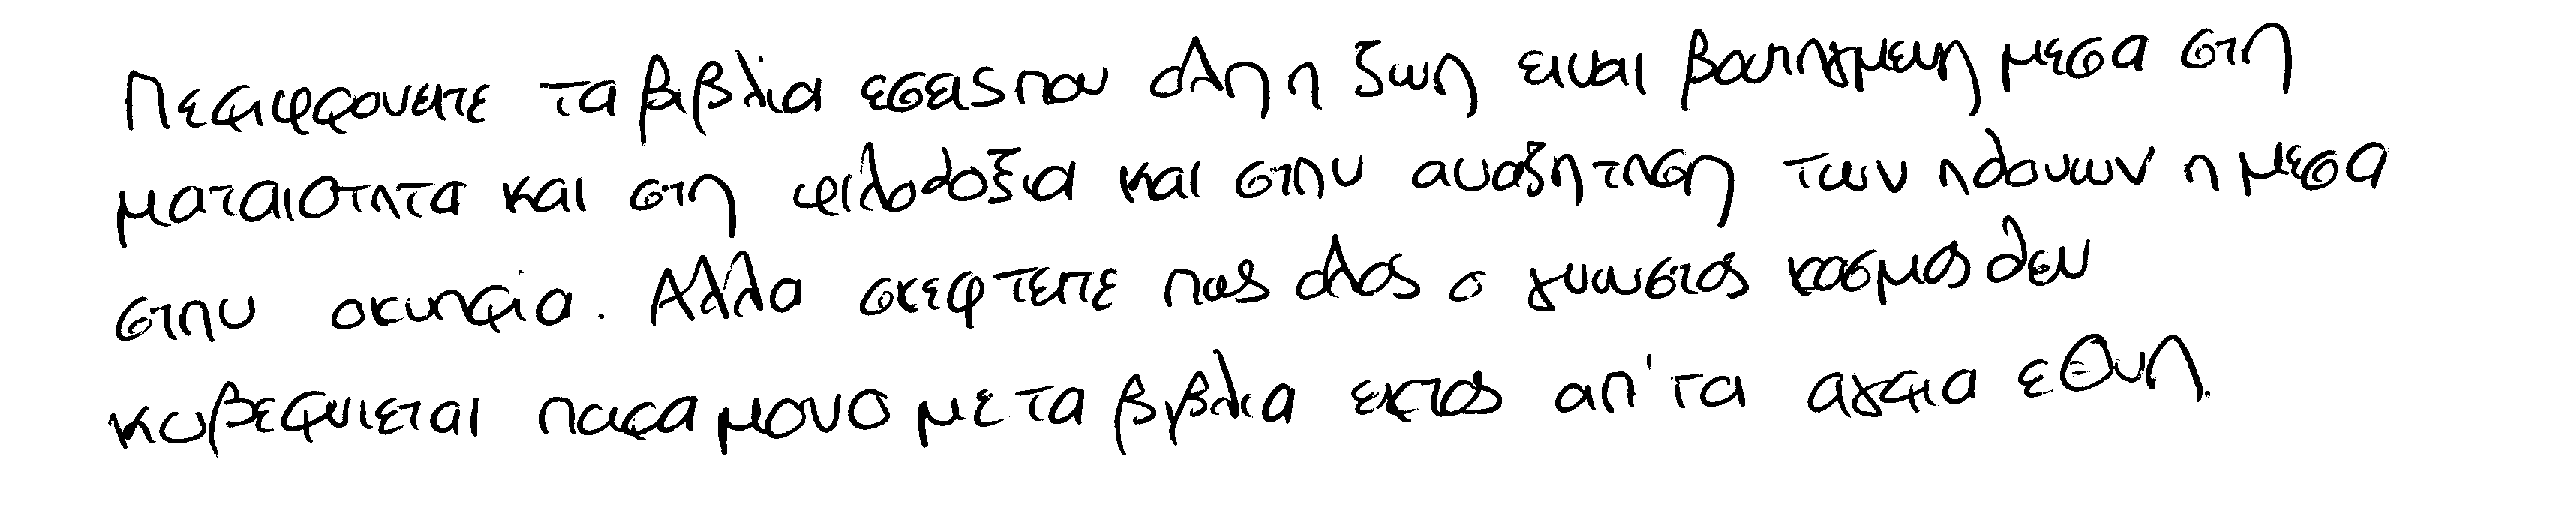 Πεφιφρονειτε τα βιβλια εσεις που ολη η ζωη ειναι βουτηγμενη μεσα στη
ματαιοτητα και στη φιλοδοξια και στην αναζητηση των ηδονων η μεσα
στην οκνηρια. Αλλα σκεφτειτε πως ολος ο γνωστος κοσμος δεν
κυβερνιεται παρα μονο με τα βιβλια εκτος απ' τα αγρια εθνη.